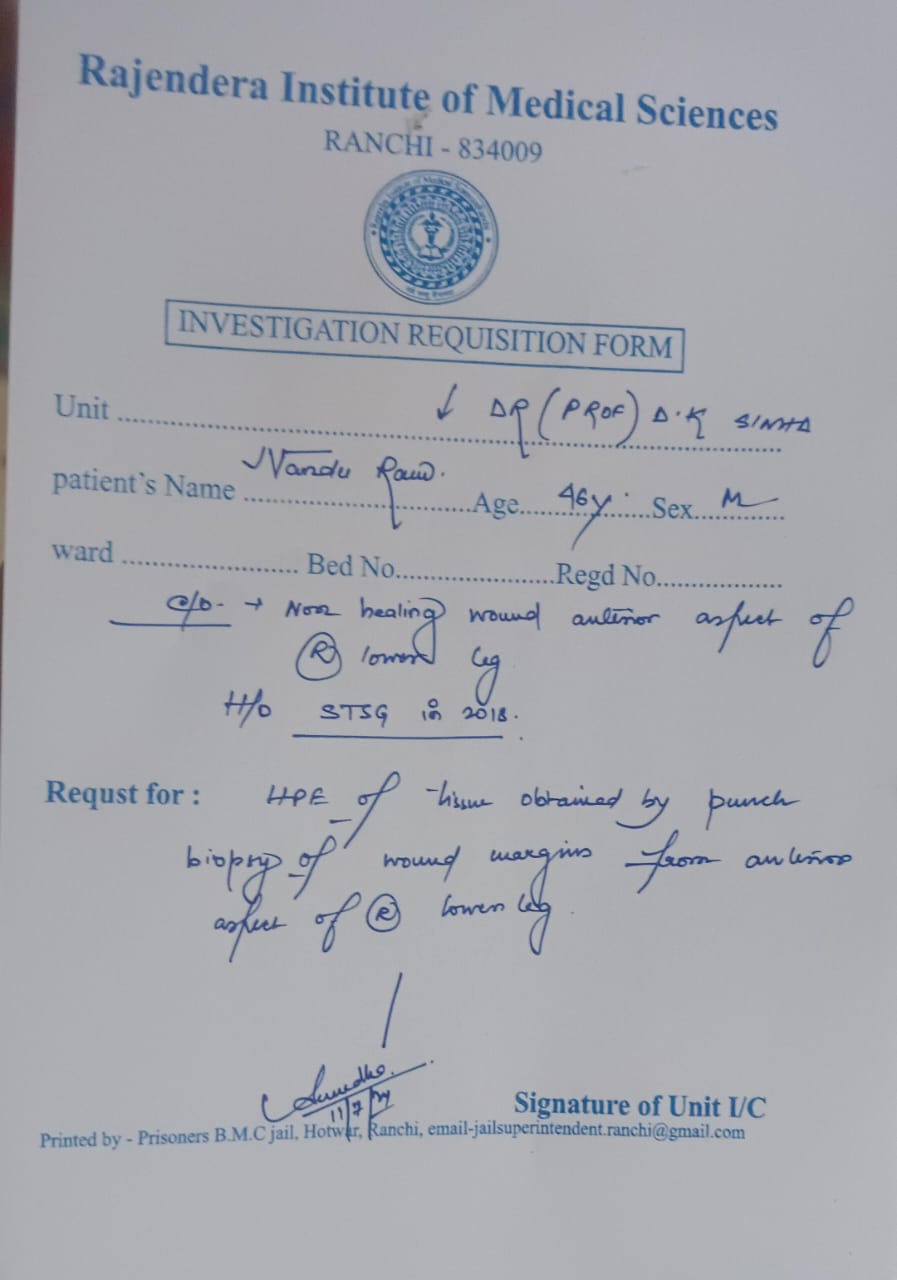 Rajendera Institute of Medical Sciences
RANCHI - 834009
INVESTIGATION REQUISITION FORM
Unit ↓ DR (PROF) D.K SINHA
patient's Name Nandu Ram. Age 46y Sex M
ward Bed No. Regd No.
c/o - → Non healing wound anterior aspect of
(R) lower leg
H/o STSG in 2018.
Requst for : HPE of tissue obtained by punch
biopsy of wound margins from anterior
aspect of (R) lower leg.
11/7/24
Signature of Unit I/C
Printed by - Prisoners B.M.C jail, Hotwar, Ranchi, email-jailsuperintendent.ranchi@gmail.com